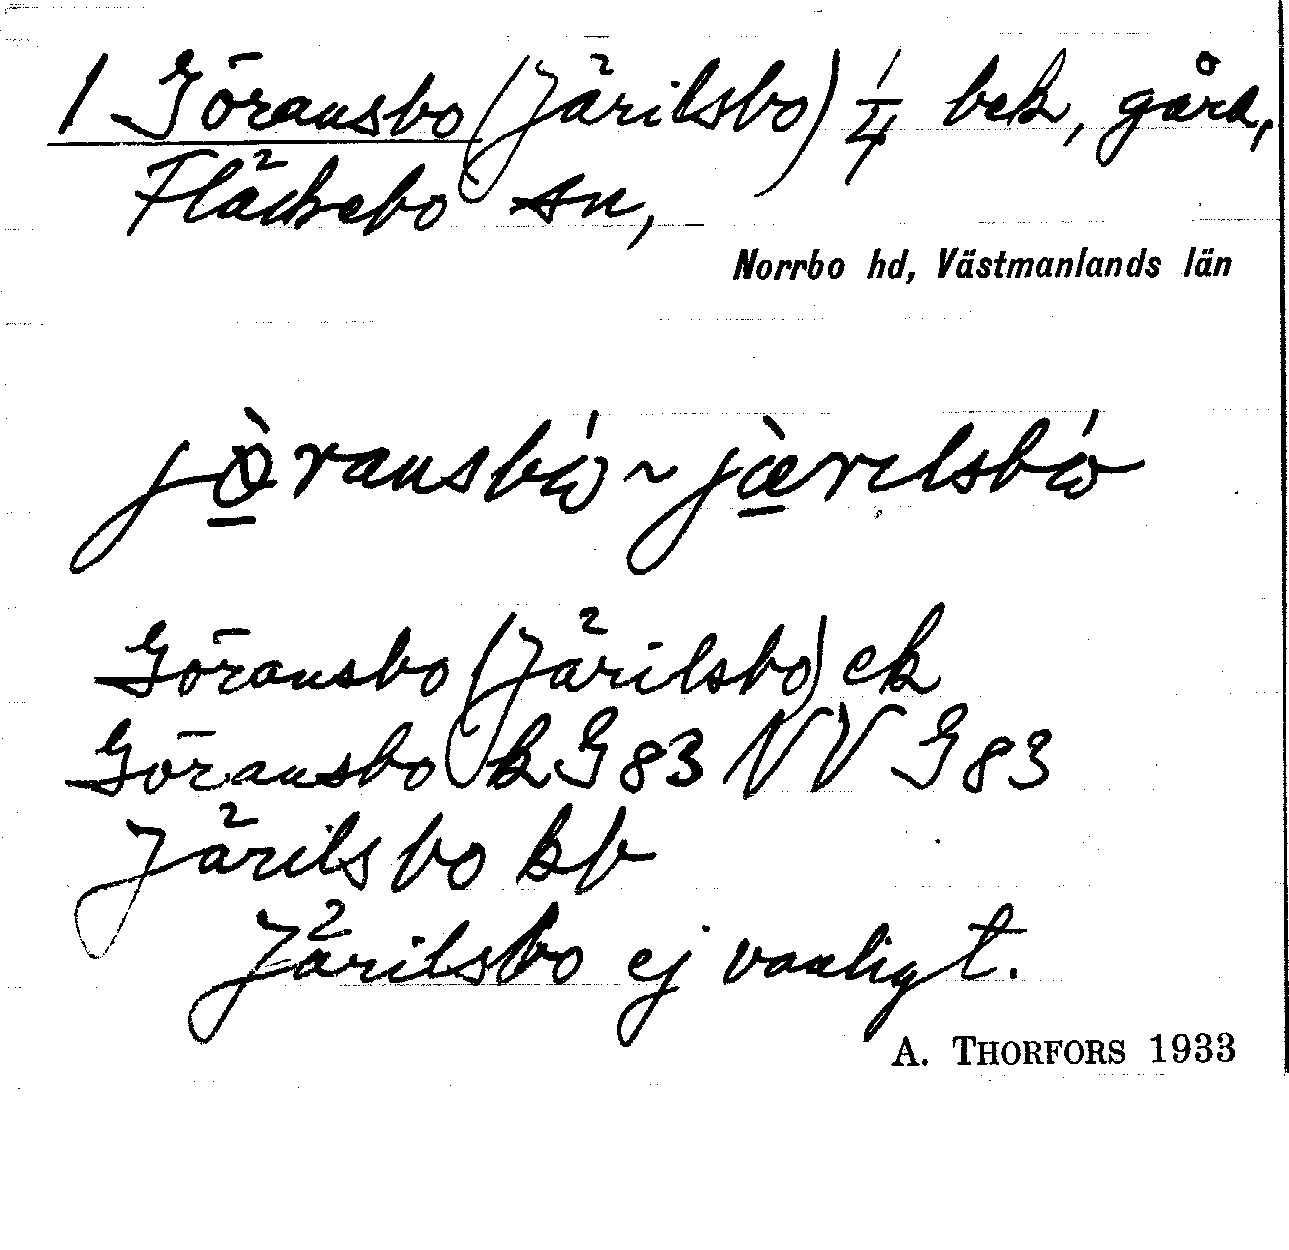 1 Göransbo (Järilsbo) 1/4 bek, gård,
Fläckebo sn,
Norrbo hd, Västmanlands län
jö̀ransbω´ ~ jæ̀rɩlsbω´
Göransbo (Järilsbo) ek
Göransbo k G 83 NV G 83
Järilsbo kb
Järilsbo ej vanligt.
A. THORFORS 1933